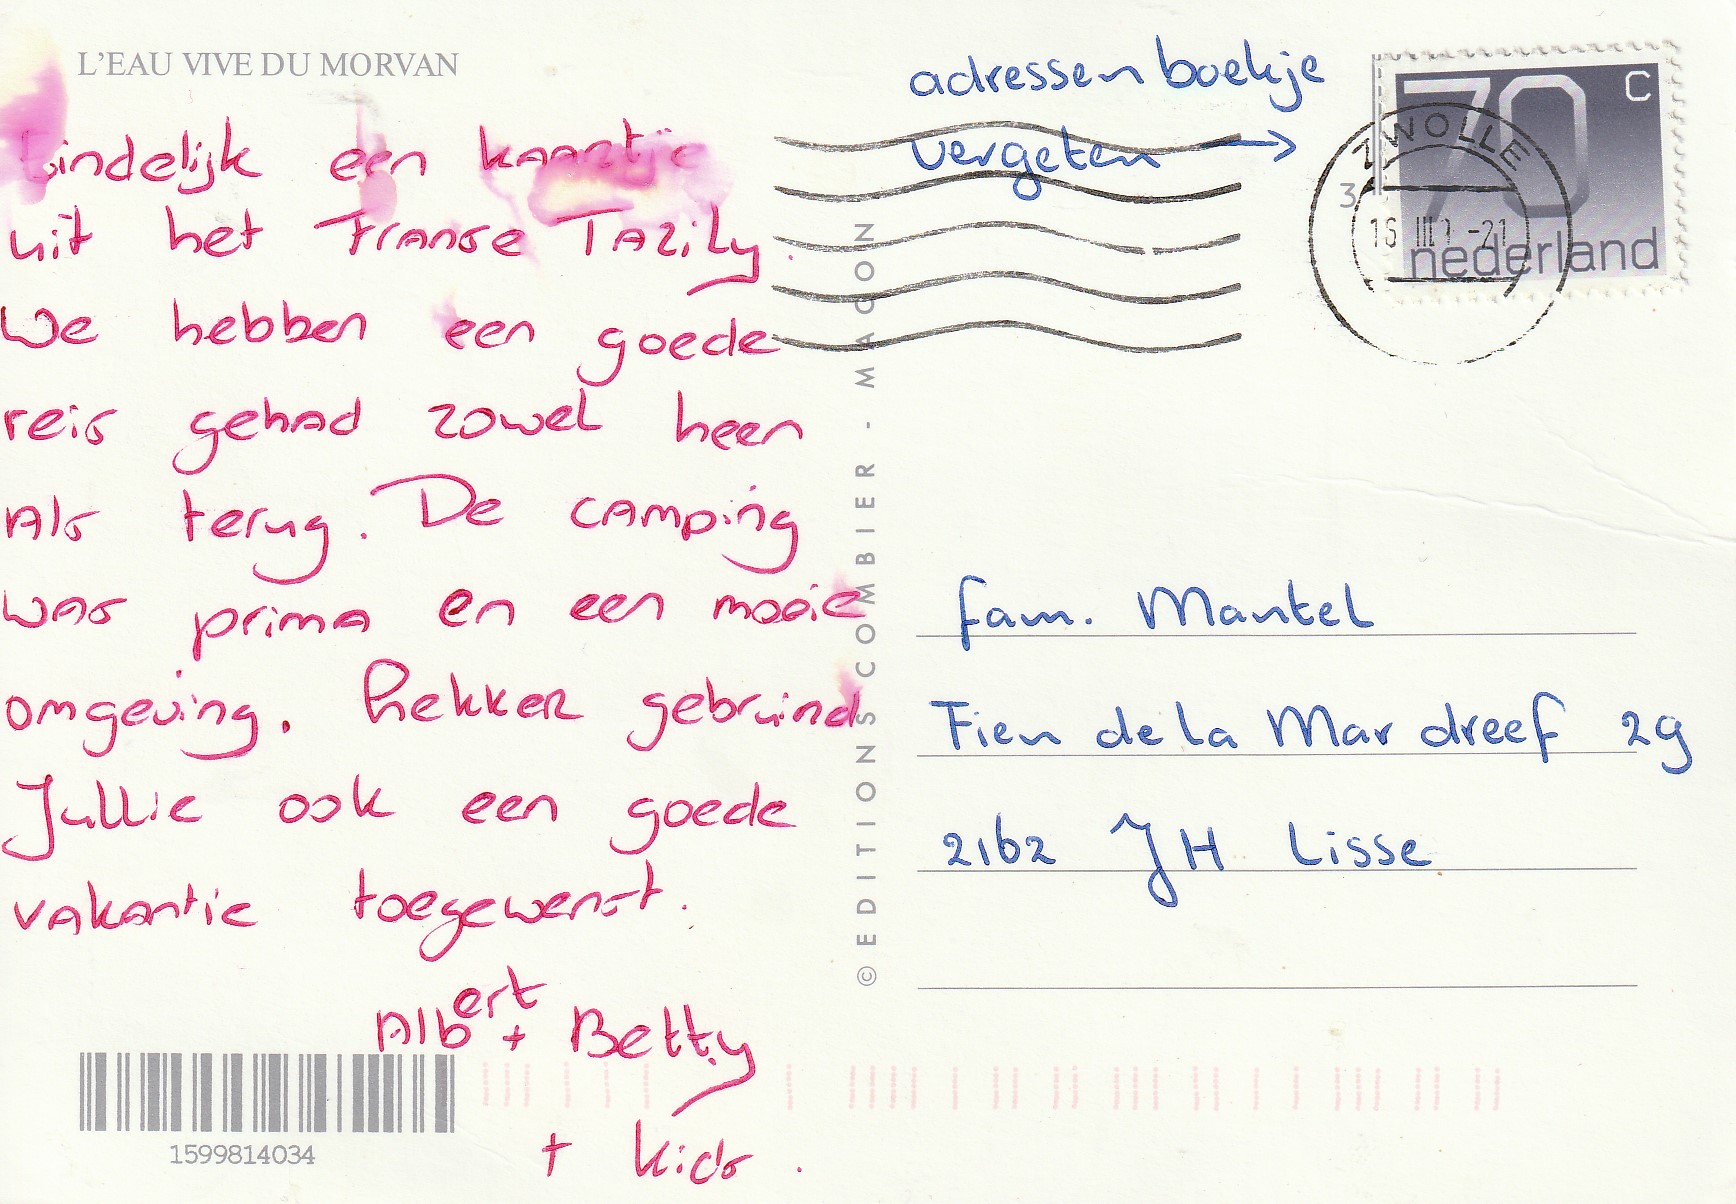 L'EAU VIVE DU MORVAN
Eindelijk een kaartje
uit het Franse Tazily.
We hebben een goede
reis gehad zowel heen
als terug. De camping
was prima en een mooie
omgeving. Lekker gebruind
Jullie ook een goede
vakantie toegewenst.
Albert + Betty
+ kids.
1599814034
© EDITIONS COMBIER - MACON
adressen boekje
vergeten →
70 c
nederland
ZWOLLE
fam. Mantel
Fien de la Mar dreef 29
2162 JH Lisse